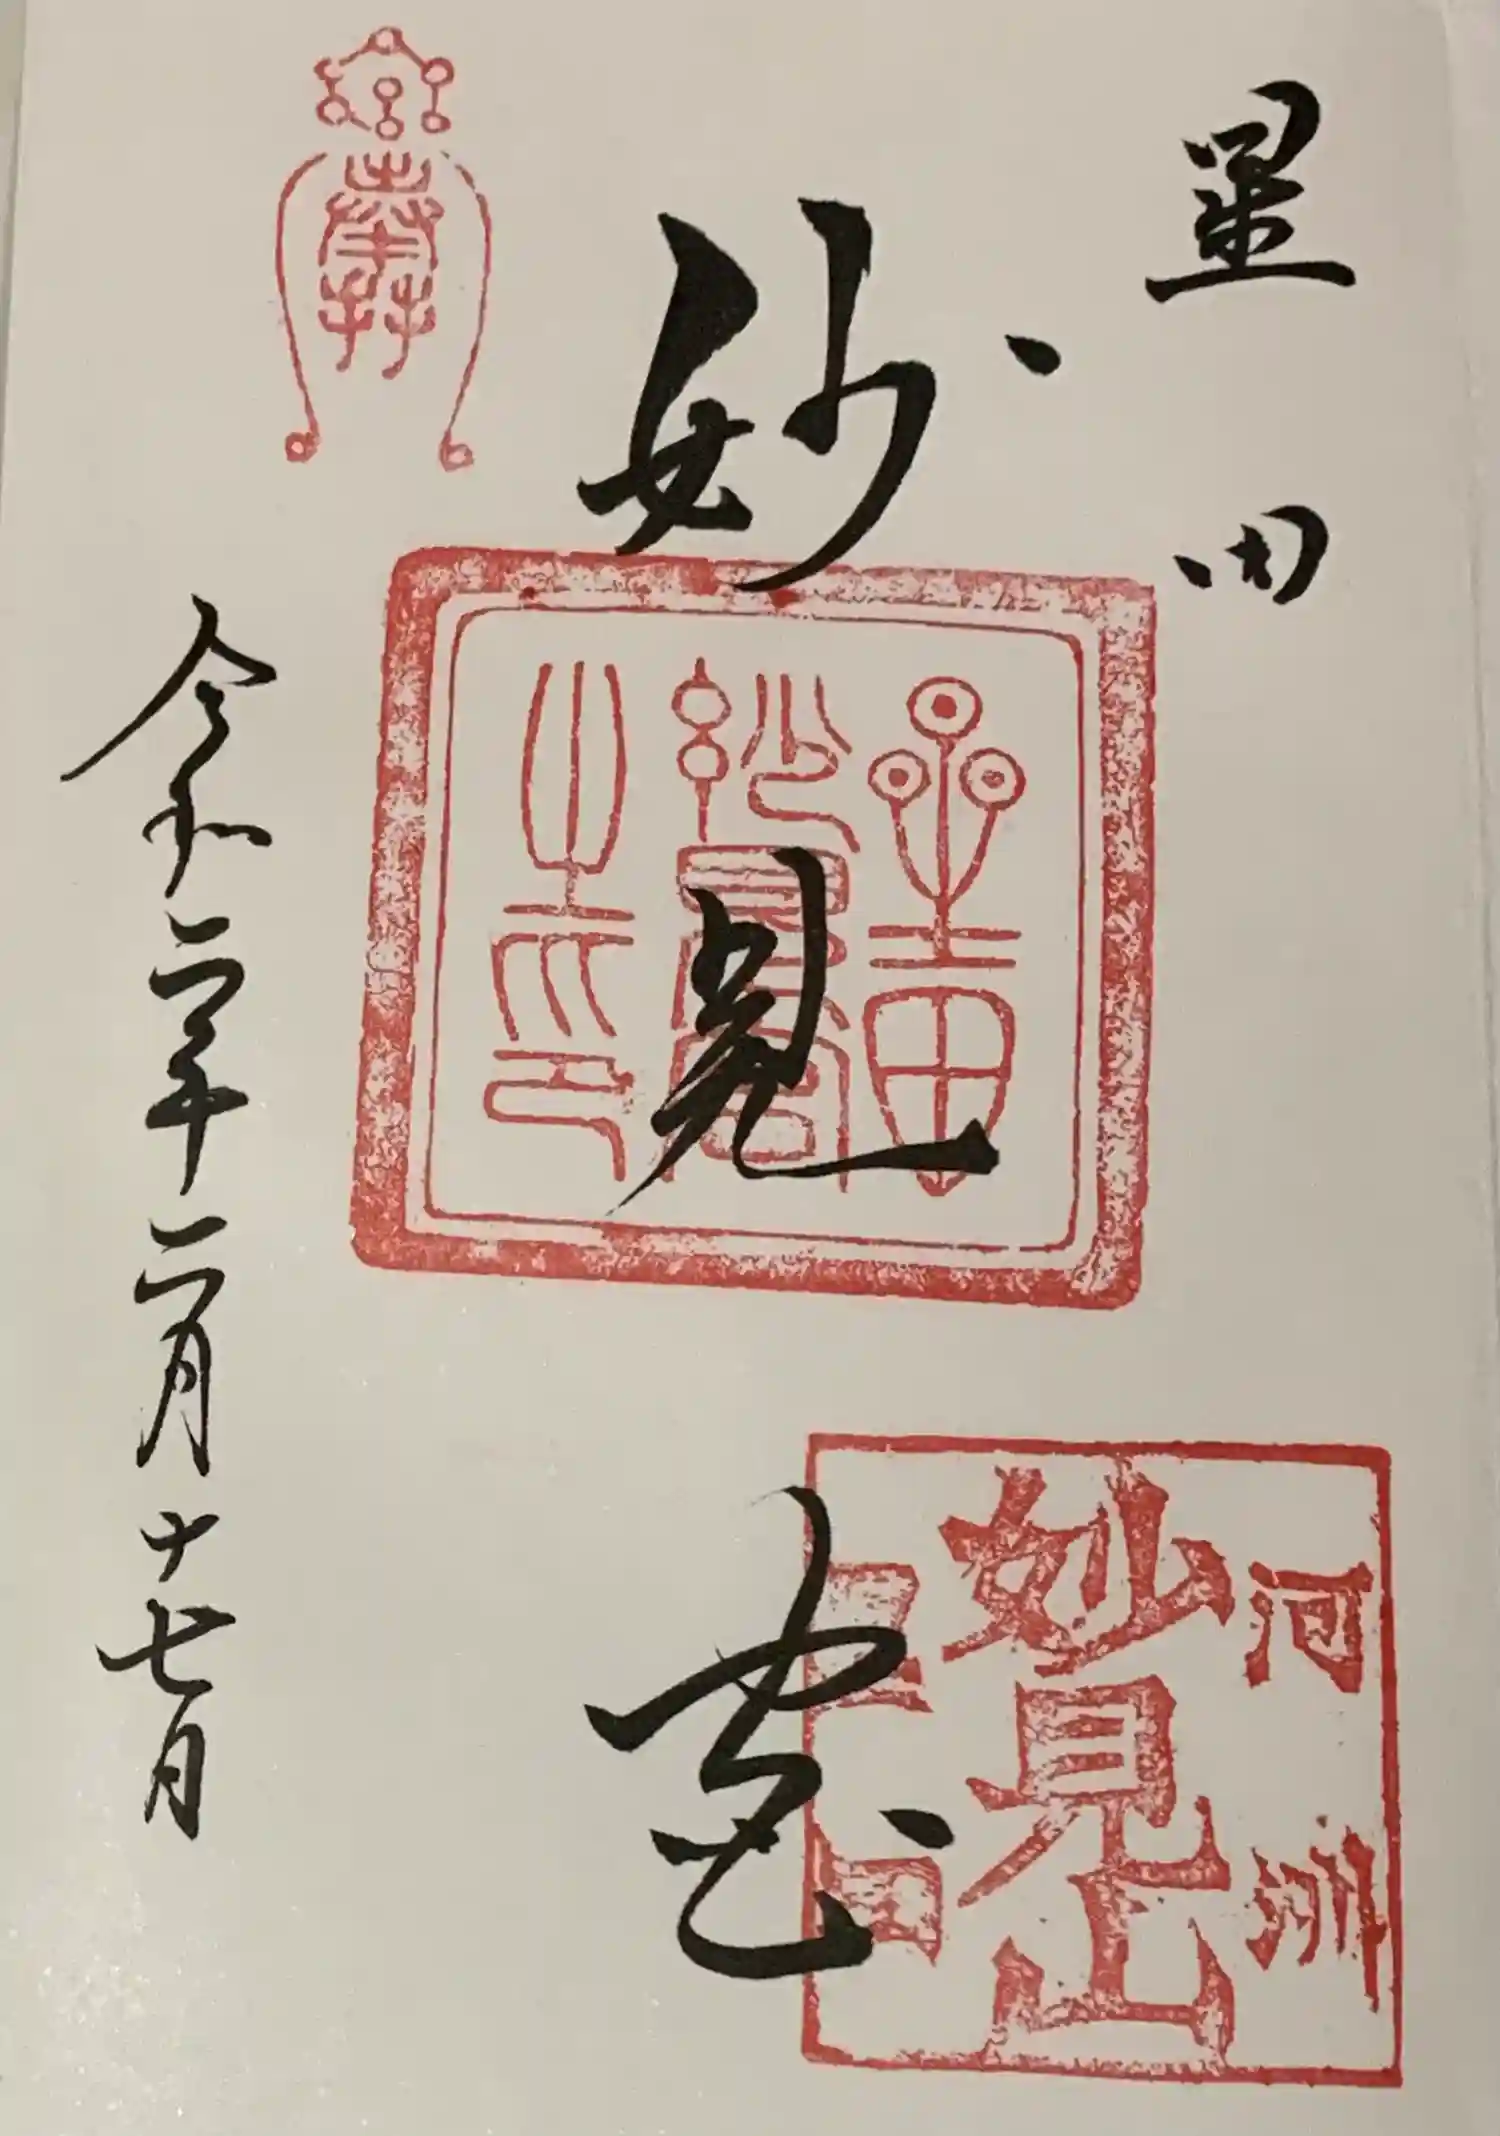 星田
妙見宮
星田
妙見宮
之印
河洲
妙見山
星田
令和二年二月十七日